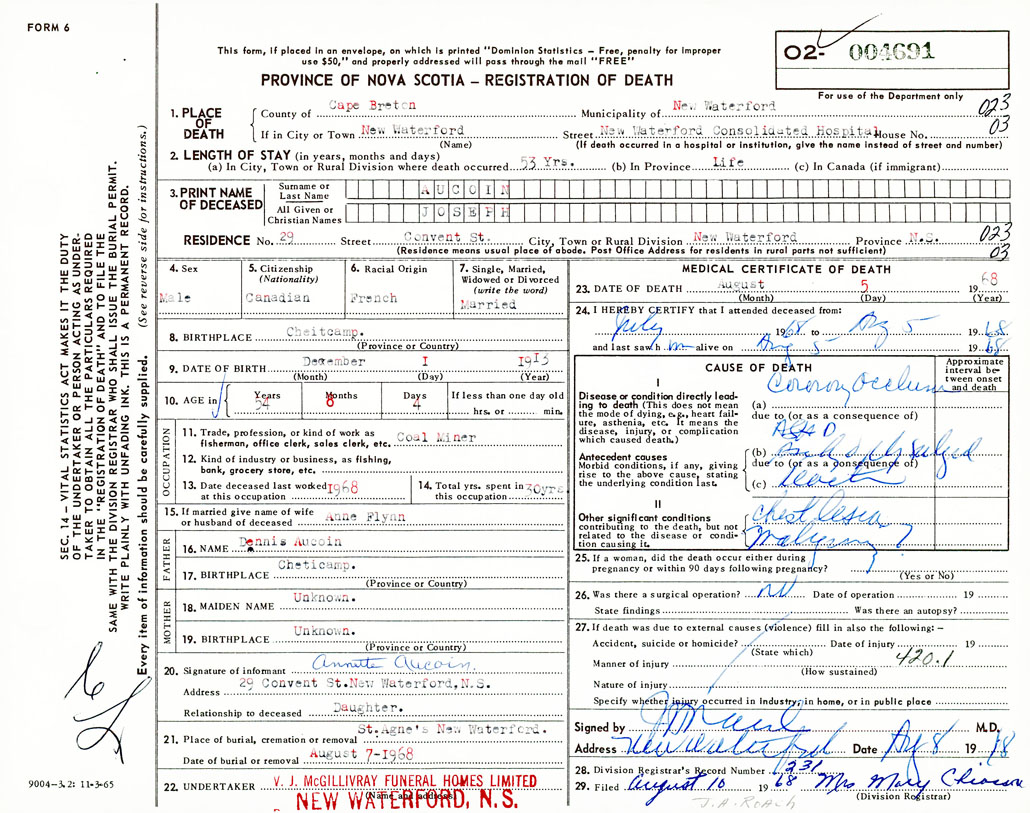 FORM 6
This form, if placed in an envelope, on which is printed "Dominion Statistics – Free, penalty for improper
use $50," and properly addressed will pass through the mail "FREE"
PROVINCE OF NOVA SCOTIA – REGISTRATION OF DEATH
O2- 004691
For use of the Department only
1. PLACE OF DEATH
County of Cape Breton Municipality of New Waterford 023
If in City or Town New Waterford Street New Waterford Consolidated Hospital House No. 03
(Name) (If death occurred in a hospital or institution, give the name instead of street and number)
2. LENGTH OF STAY (in years, months and days)
(a) In City, Town or Rural Division where death occurred 53 Yrs. (b) In Province Life (c) In Canada (if immigrant)
3. PRINT NAME OF DECEASED
Surname or Last Name AUCOIN
All Given or Christian Names JOSEPH
RESIDENCE No. 29 Street Convent St. City, Town or Rural Division New Waterford Province N.S. 023
(Residence means usual place of abode. Post Office Address for residents in rural parts not sufficient) 03
4. Sex
Male
5. Citizenship
(Nationality)
Canadian
6. Racial Origin
French
7. Single, Married,
Widowed or Divorced
(write the word)
Married
8. BIRTHPLACE Cheitcamp.
(Province or Country)
9. DATE OF BIRTH December I 1913
(Month) (Day) (Year)
10. AGE in Years Months Days If less than one day old
54 8 4 hrs. or min.
OCCUPATION
11. Trade, profession, or kind of work as
fisherman, office clerk, sales clerk, etc. Coal Miner
12. Kind of industry or business, as fishing,
bank, grocery store, etc.
13. Date deceased last worked
at this occupation 1968
14. Total yrs. spent in
this occupation 30yrs
15. If married give name of wife
or husband of deceased Anne Flynn
FATHER
16. NAME Dennis Aucoin
17. BIRTHPLACE Cheticamp.
(Province or Country)
MOTHER
18. MAIDEN NAME Unknown.
19. BIRTHPLACE Unknown.
(Province or Country)
20. Signature of informant Annette Aucoin.
Address 29 Convent St.New Waterford,N.S.
Relationship to deceased Daughter.
21. Place of burial, cremation or removal St.Agne's New Waterford.
Date of burial or removal August 7-1968
22. UNDERTAKER V. J. McGILLIVRAY FUNERAL HOMES LIMITED
(Name and address)
NEW WATERFORD, N.S.
MEDICAL CERTIFICATE OF DEATH
23. DATE OF DEATH August 5 19 68
(Month) (Day) (Year)
24. I HEREBY CERTIFY that I attended deceased from:
July 1968 to Aug 5 1968
and last saw h m alive on Aug 5 19 68
CAUSE OF DEATH
Approximate
interval be-
tween onset
and death
I
Disease or condition directly lead-
ing to death (This does not mean
the mode of dying, e.g., heart fail-
ure, asthenia, etc. It means the
disease, injury, or complication
which caused death.)
(a) Coronary Occlusion
due to (or as a consequence of)
Antecedent causes
Morbid conditions, if any, giving
rise to the above cause, stating
the underlying condition last.
(b)
due to (or as a consequence of)
(c)
II
Other significant conditions
contributing to the death, but not
related to the disease or condi-
tion causing it.
Chest Lesion
Malignancy ?
25. If a woman, did the death occur either during
pregnancy or within 90 days following pregnancy?
(Yes or No)
26. Was there a surgical operation? no Date of operation 19
State findings Was there an autopsy?
27. If death was due to external causes (violence) fill in also the following: –
Accident, suicide or homicide? Date of injury 19
(State which)
Manner of injury 420.1
(How sustained)
Nature of injury
Specify whether injury occurred in Industry, in home, or in public place
Signed by M.D.
Address New Waterford Date Aug 8 19
28. Division Registrar's Record Number 231
29. Filed August 10 1968 Mrs Mary Chiasson
(Division Registrar)
J.A. ROACH
SEC. 14 – VITAL STATISTICS ACT MAKES IT THE DUTY
OF THE UNDERTAKER OR PERSON ACTING AS UNDER-
TAKER TO OBTAIN ALL THE PARTICULARS REQUIRED
IN THE "REGISTRATION OF DEATH" AND TO FILE THE
SAME WITH THE DIVISION REGISTRAR WHO SHALL ISSUE THE BURIAL PERMIT.
WRITE PLAINLY WITH UNFADING INK. THIS IS A PERMANENT RECORD.
Every item of information should be carefully supplied. (See reverse side for instructions.)
9004–3.2: 11-3-65